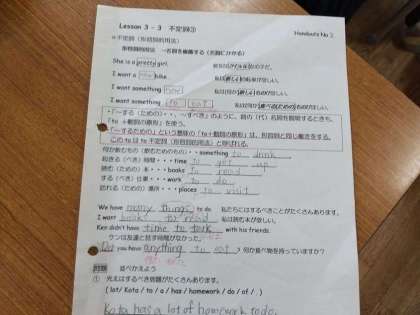 Lesson 3 - 3 不定詞③
Handouts No 2
不定詞(形容詞的用法)
形容詞的用法 →名詞を修飾する(名詞にかかる)
She is a pretty girl.
I want a new bike.
I want something new
I want something to eat
・「~する(ための)・・、~すべき」のように、前の(代)名詞を説明するときも、
「to +動詞の原形」を使う。
「~するための」という意味の「to+動詞の原形」は、形容詞と同じ働きをする。
このto は to 不定詞(形容詞的用法)と呼ばれる。
何か飲むもの(飲むためのもの)・・something to drink
起きる(べき)時間・・・time to get up
読む(ための)本・・・books to read
する(べき)仕事・・・work to do
訪れる(ための)場所・・・places to visit
We have many things to do 私たちにはするべきことがたくさんあります。
I want books to read 私は読む本が欲しい。
Ken didn't have time to talk with his friends.
ケンは友達と話す時間がなかった。
Do you have anything to eat ? 何か食べ物を持っていますか?
問題 並べかえよう
① コタはするべき宿題がたくさんあります。
( lot/ Kota / to / a / has / homework / do / of / )
Kota has a lot of homework to do.